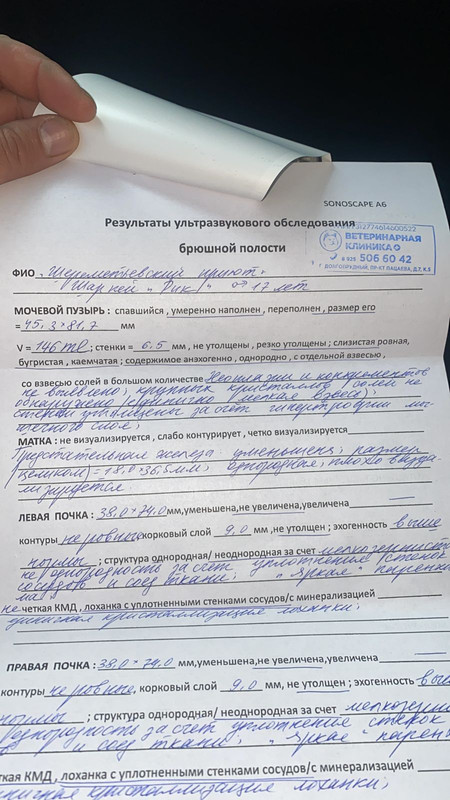 SONOSCAPE A6
Результаты ультразвукового обследования
брюшной полости
ВЕТЕРИНАРНАЯ
КЛИНИКА
506 60 42
Г. ДОЛГОПРУДНЫЙ, ПР-КТ ПАЦАЕВА, Д.7, К.5
ФИО Шереметьевский приют.
Шарпей "Рик" ♂ 17 лет
МОЧЕВОЙ ПУЗЫРЬ: спавшийся, умеренно наполнен, переполнен, размер его
= 45,3×81,7 мм
V = 146 ml; стенки = 6,5 мм, не утолщены, резко утолщены; слизистая ровная,
бугристая, каемчатая; содержимое анэхогенно, однородно, с отдельной взвесью,
со взвесью солей в большом количестве Неоплазии и конкрементов
не выявлено, крупных кристаллов солей не
обнаружено (единично мелкая взвесь);
стенки утолщены за счет гипертрофии мы-
шечного слоя;
МАТКА: не визуализируется, слабо контурирует, четко визуализируется
Предстательная железа уменьшена; размер
(целиком) = 18,0×36,5 мм; однородная; плохо визуа-
лизируется
ЛЕВАЯ ПОЧКА: 38,0×74,0 мм,уменьшена,не увеличена,увеличена
контуры неровные корковый слой 9,0 мм ,не утолщен; эхогенность выше
нормы; структура однородная/ неоднородная за счет мелкозернистой
неоднородность за счет уплотнения стенок
сосудов и соед. ткани; "яркая" парен
не четкая КМД, лоханка с уплотненными стенками сосудов/с минерализацией
кристаллизация лоханки;
ПРАВАЯ ПОЧКА: 38,0×74,0 мм,уменьшена,не увеличена,увеличена
контуры неровные, корковый слой 9,0 мм, не утолщен; эхогенность выш
нормы; структура однородная/ неоднородная за счет мелкозерн
за счет уплотнения стенок
и соед. ткани; "Яркая" парен
ткая КМД, лоханка с уплотненными стенками сосудов/с минерализацией
кристаллизация лоханки;